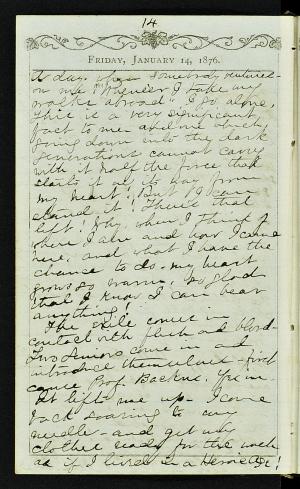 14
FRIDAY, JANUARY 14, 1876.
A day when somebody ventured
on me "Whenever I take my
walks abroad" I go alone,
This is a very significant
fact to me and one which,
going down into the dark
generations cannot carry
with it half the force that
starts it all to day from
my heart! But I can
stand it! There's that
left! Why, when I think of
where I am and how I came
here, and what I have the
chance to do - my heart
grows so warm, so glad
that I know I can bear
anything!
The exile comes in
contact with flesh and blood -
Two Seniors come in and
introduce themselves - first
comes Prof. Backus.
It lifts me up - I come
back soaring to my
needle - and get my
clothes ready for the week
as if I lived in a Heroic Age!